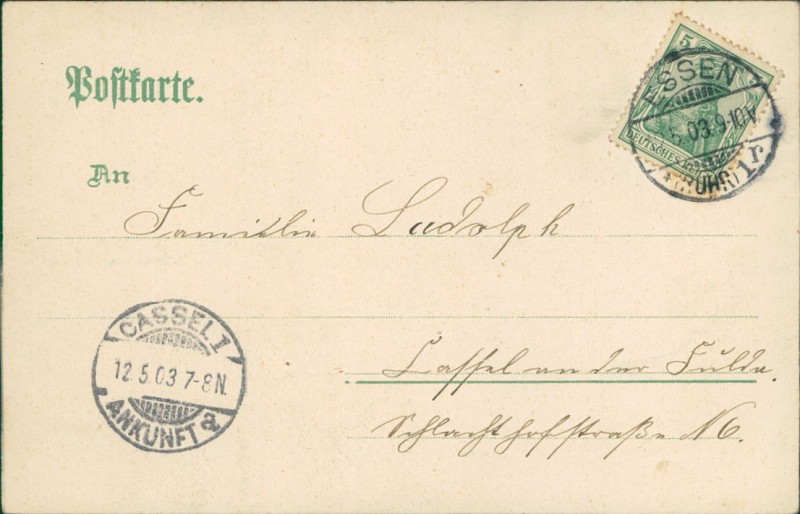 Postkarte.
An
Familie Ludolph
Cassel an der Fulda.
Schlachthofstraße N6.
5
DEUTSCHES
ESSEN
5. 03. 9-10V
(RUHR) 1r
CASSEL 1
12.5.03 7-8N.
ANKUNFT